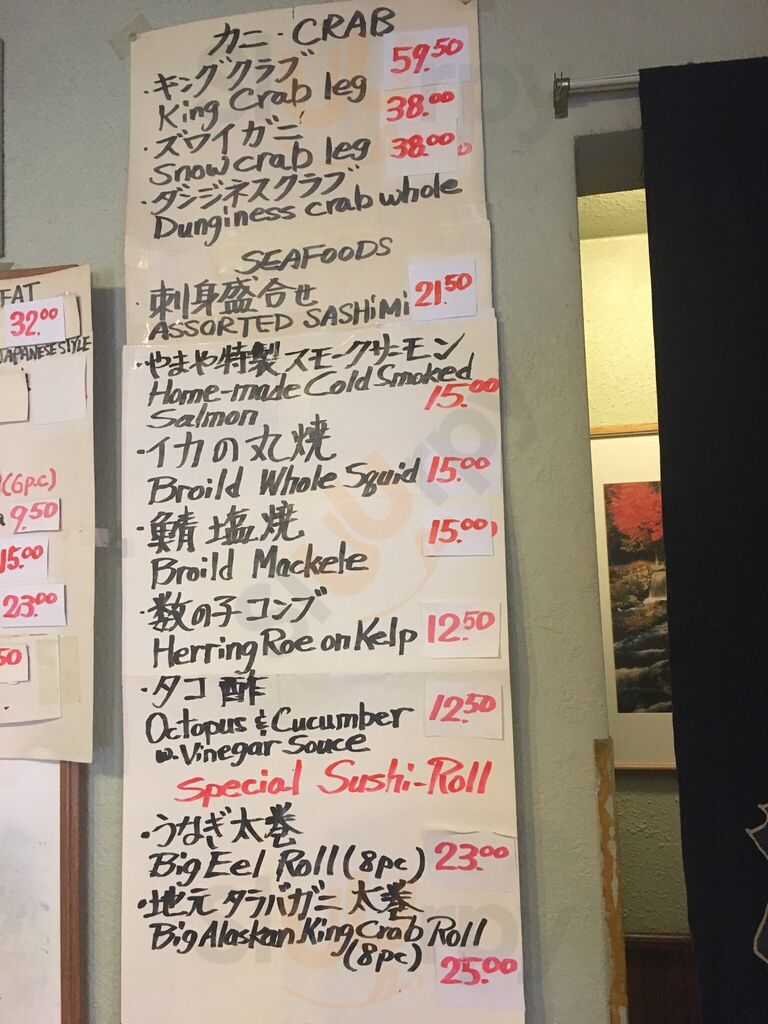 カニ・CRAB
・キングクラブ 59.50
King Crab leg
・ズワイガニ 38.00
Snow crab leg 38.00
・ダンジネスクラブ
Dunginess crab whole
SEAFOODS
・刺身盛合せ 21.50
ASSORTED SASHiMi
・やまや特製スモークサーモン
Home-made Cold Smoked
Salmon 15.00
・イカの丸焼
Broild Whole Squid 15.00
・鯖塩焼 15.00
Broild Mackele
・数の子コンブ
Herring Roe on Kelp 12.50
・タコ酢
Octopus & Cucumber 12.50
w. Vinegar Souce
Special Sushi-Roll
・うなぎ太巻
Big Eel Roll (8pc) 23.00
・地元タラバガニ太巻
Big Alaskan King Crab Roll
(8pc)
25.00
FAT
32.00
JAPANESE STYLE
(6p.c)
9.50
15.00
23.00
50